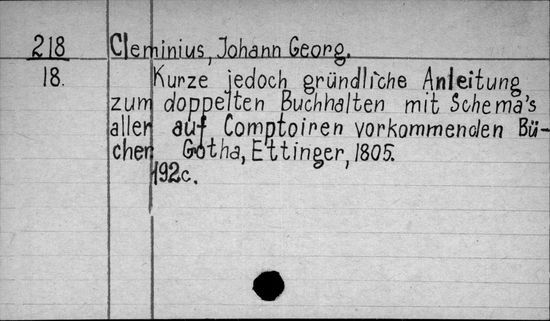 218 Cleminius, Johann Georg.
18. Kurze jedoch gründliche Anleitung
zum doppelten Buchhalten mit Schema's
aller auf Comptoiren vorkommenden Bü-
cher. Gotha, Ettinger, 1805.
192c.